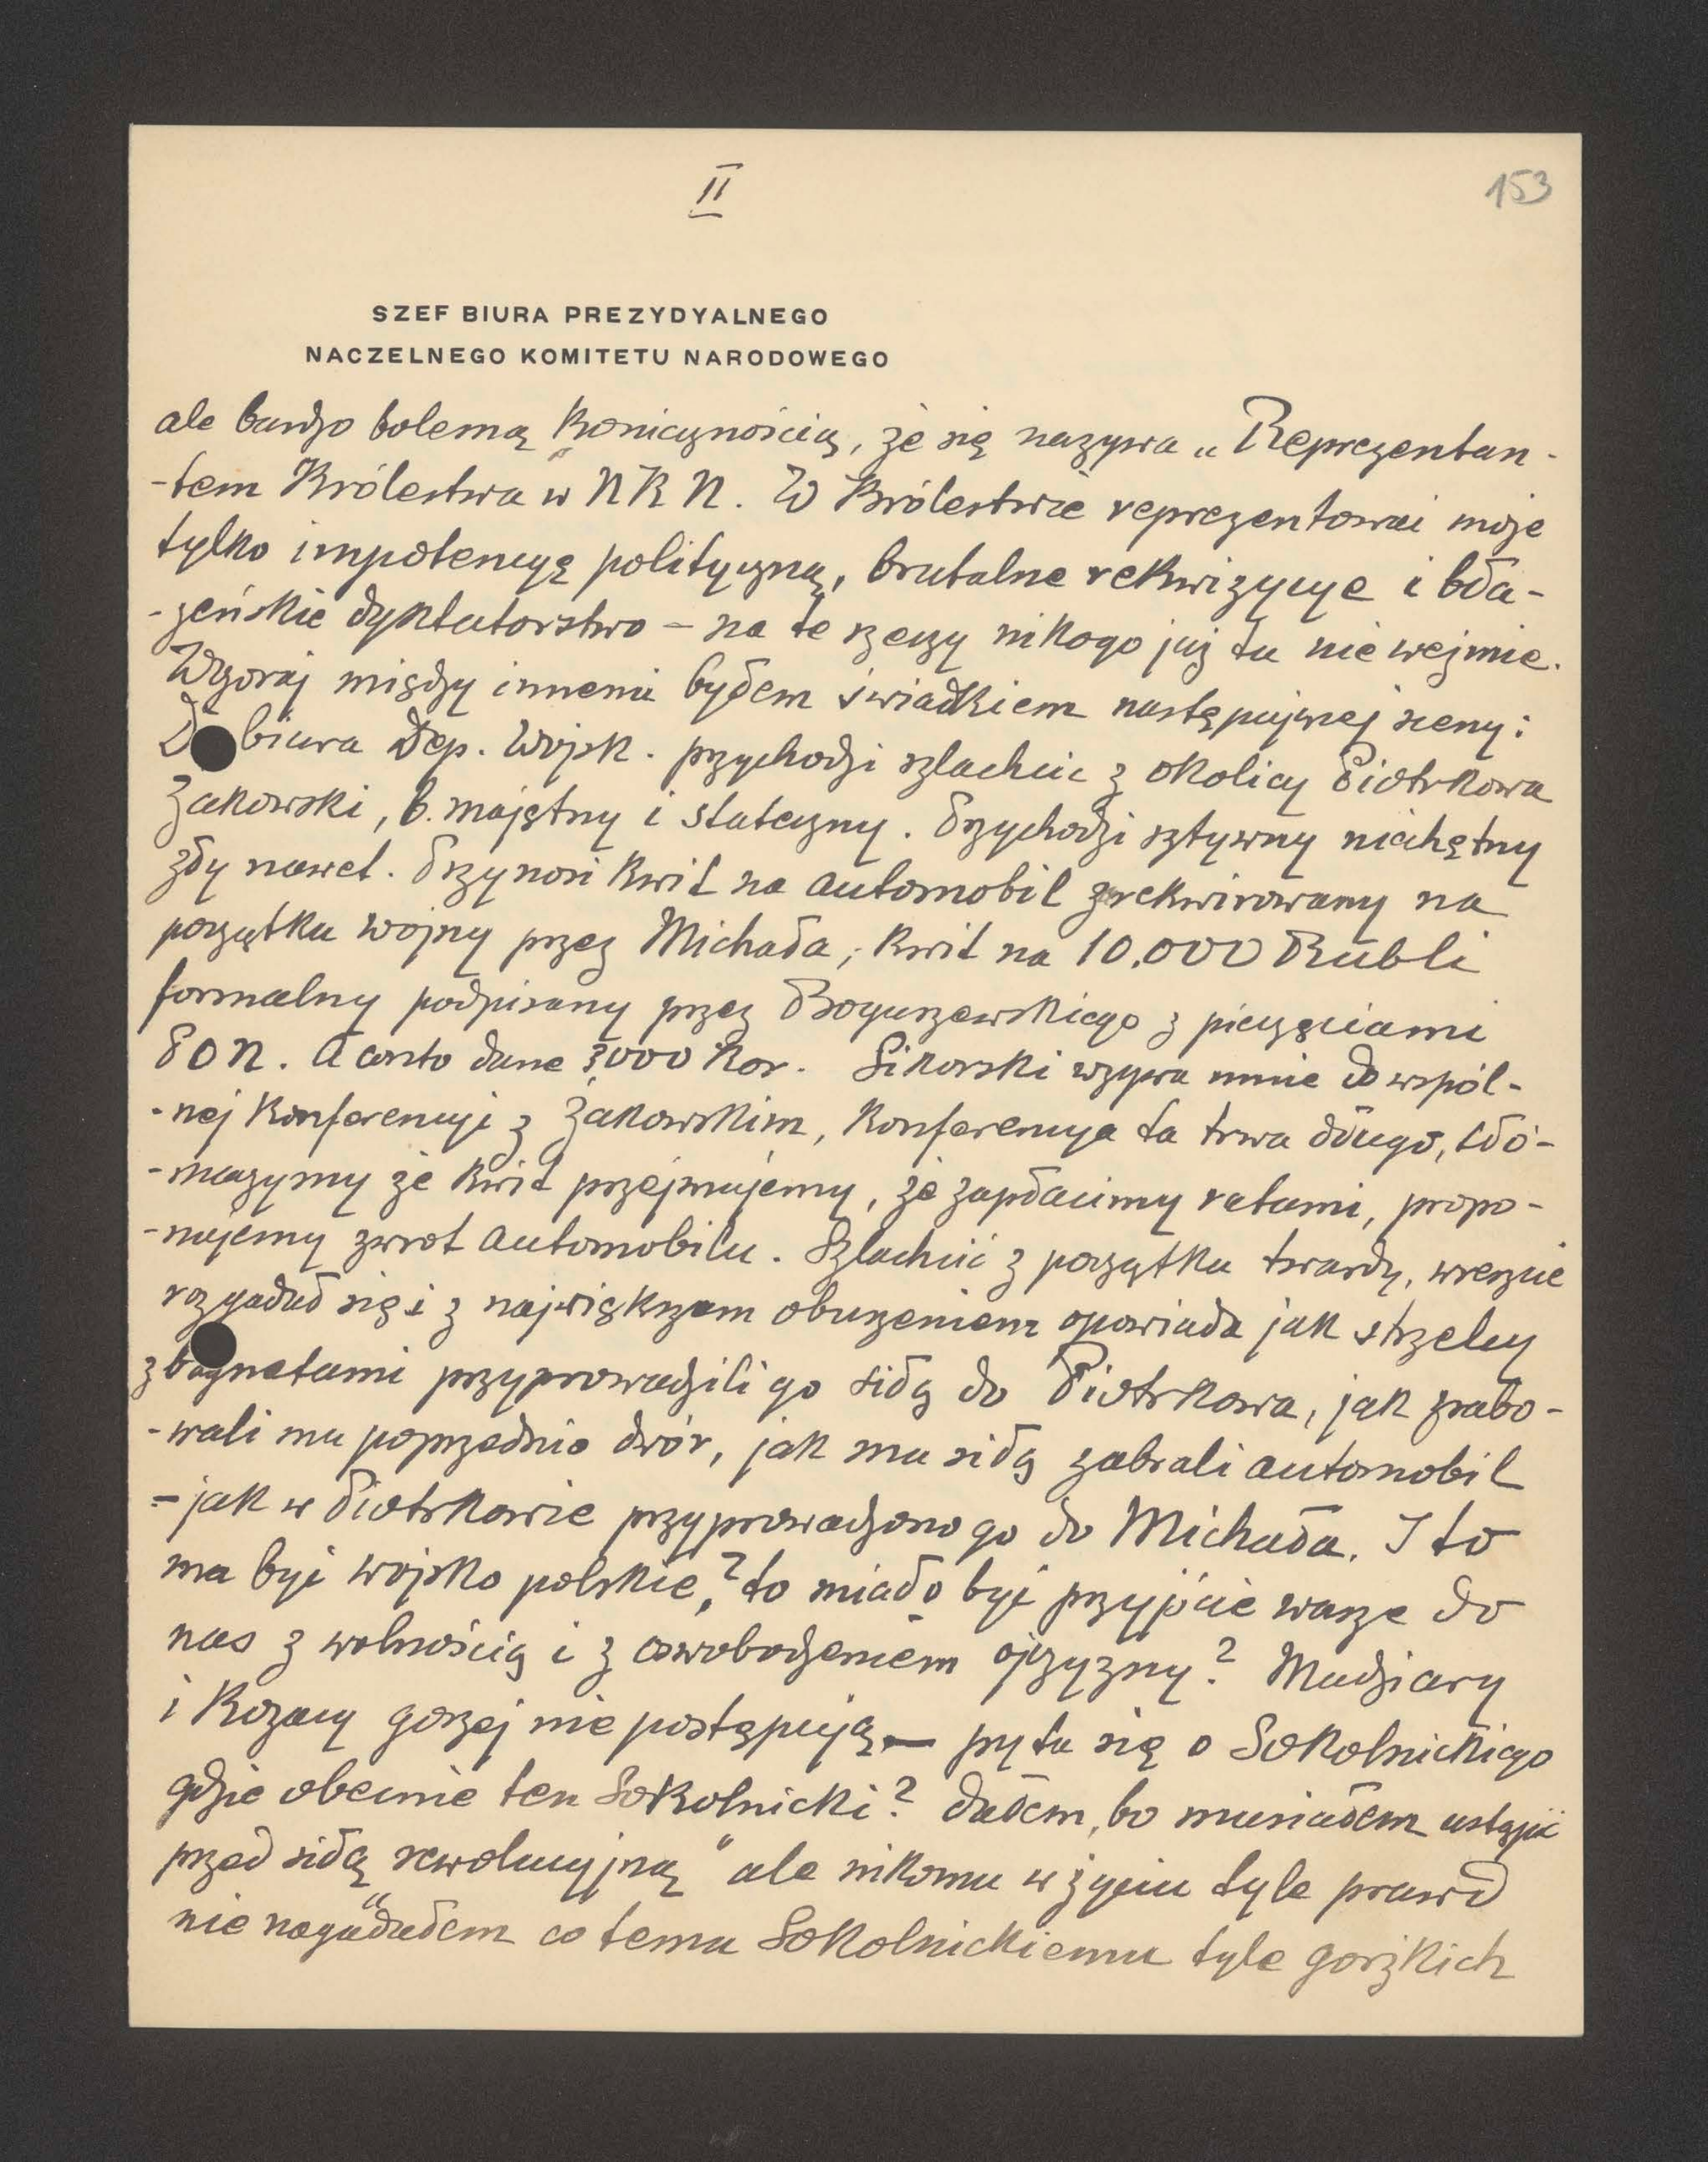 II
153
SZEF BIURA PREZYDYALNEGO
NACZELNEGO KOMITETU NARODOWEGO
ale bardzo bolesną koniecznością, że się nazywa „Reprezentan-
-tem Królestwa" w NKN. W Królestwie reprezentować może
tylko impotencyę polityczną, brutalne rekwizycye i bła-
-zeńskie dyktatorstwo – na te rzeczy nikogo już tu nie weźmie.
Wczoraj między innemi byłem świadkiem następującej sceny:
Do biura Dep. Wojsk. przychodzi szlachcic z okolicy Piotrkowa
Żakowski, b. majętny i stateczny. Przychodzi sztywny niechętny
zły nawet. Przynosi kwit na automobil zarekwirowany na
początku wojny przez Michała, kwit na 10.000 Rubli
formalny podpisany przez Boguszewskiego z pieczęciami
PON. A conto dane 3000 Kor. Sikorski wzywa mnie do wspól-
-nej konferencyi z Żakowskim, konferencya ta trwa długo, tłó-
-maczymy że kwit przejmujemy, że zapłacimy ratami, propo-
-nujemy zwrot automobilu. Szlachcic z początku twardy, wreszcie
rozgadał się i z największem oburzeniem opowiada jak strzelcy
z bagnetami przyprowadzili go siłą do Piotrkowa, jak zrabo-
-wali mu poprzednio dwór, jak mu siłą zabrali automobil
– jak w Piotrkowie przyprowadzono go do Michała. I to
ma być wojsko polskie? to miało być przyjście wasze do
nas z wolnością i z oswobodzeniem ojczyzny? Madziary
i Kozacy gorzej nie postępują – pyta się o Sokolnickiego
gdzie obecnie ten Sokolnicki? Dałem, bo musiałem ustąpić
przed siłą „rewolucyjną" ale nikomu w życiu tyle prawd
nie nagadałem co temu Sokolnickiemu tyle gorzkich